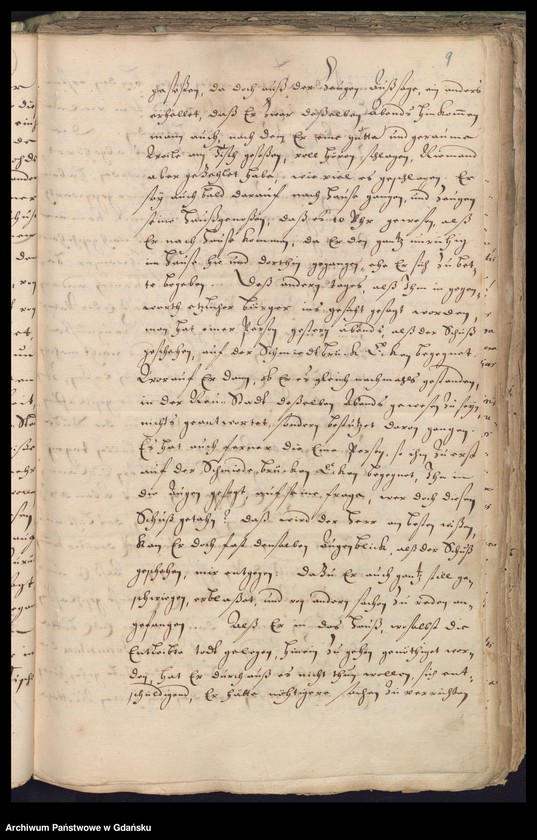 9
gesessen, da doch auß der Zeugen Außsage, ein anders
erhellet, daß Er zwar deßelben Abends hinkommen
man auch, nach dem Er eine gutte und geraume
Weile am Tisch gesessen, voll hören schlagen, Niemand
aber gezehlet habe, wie viel es geschlagen. Er
sey auch bald darauf nach Hause gangen, und zeugen
seine Haußgenossen, daß es 10 Uhr gewesen, alß
Er nach Hause kommen, da Er den gantz unruhig
im Hause hin und dorthin gegangen, ehe Er sich zu bet
te begeben. Deß andern tages, alß Ihm in gegen-
warth etzlicher bürger ins gesicht gesagt worden,
man hat einer Person gestern abends, alß der Schuß
geschehen, auf der Schmiedbrück begegnet.
Worauf Er dann, ob Er es gleich nachmahls gestanden,
in der Neu Stadt deßelben Abends gewesen zu seyn,
nichts geantwortet, sondern bestürtzet davon gangen.
Es hat auch ferner die Eine Person, so ihm zu erst
auf der Schmiedebrücken begegnet, Ihm in
die Augen gesagt, auf seine fragen, wer doch diesen
Schuß gethan? daß wird der Herr am besten wißen,
kam Er doch fast denselben Augenblick, alß der Schuß
geschehen, mir entgegen. Dazu Er auch gantz still ge-
schwiegen, erblaßet, und von andern sachen zu reden an-
gefangen. Alß Er in das Hauß, woselbst die
Entleibte todt gelegen, hinein zu gehen genöthiget wor-
den, hat Er durchauß es nicht thun wollen, sich ent-
schuldigend, Er hätte nöthigere sachen zu verrichten
Archiwum Państwowe w Gdańsku